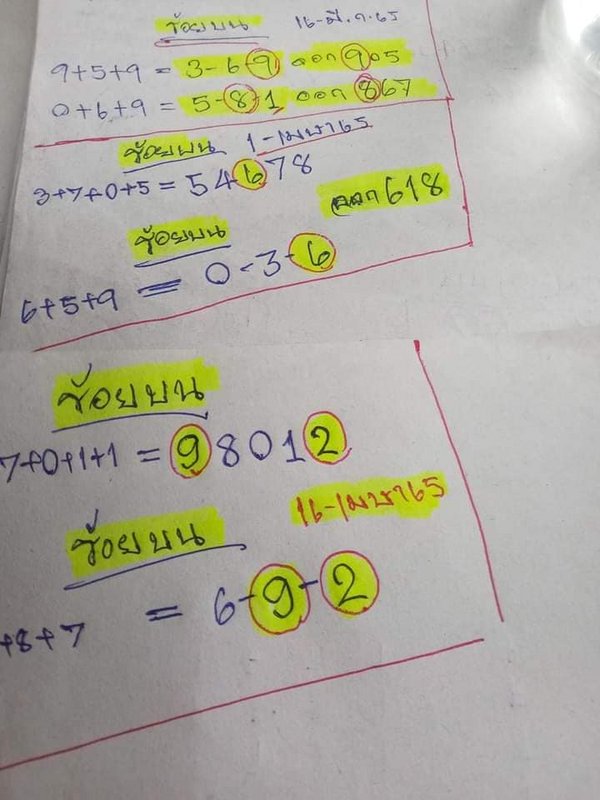 ร้อยบน 16-มี.ค.65
9+5+9 = 3-6-9 ออก 905
0+6+9 = 5-8-1 ออก 867
ร้อยบน 1-เมษา65
3+7+0+5 = 54678
ออก 618
ร้อยบน
6+5+9 = 0-3-6
ร้อยบน
7+0+1+1 = 98012
16-เมษา65
ร้อยบน
+8+7 = 6-9-2